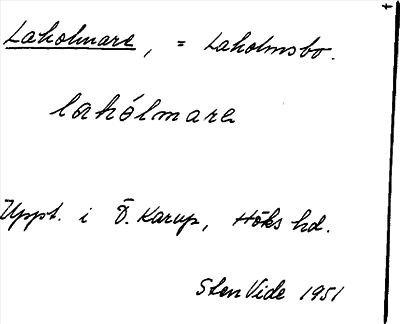 Laholmare, = Laholmsbo.
lahólmare
Uppt. i Ö. Karup, Höks hd.
Sten Vide 1951